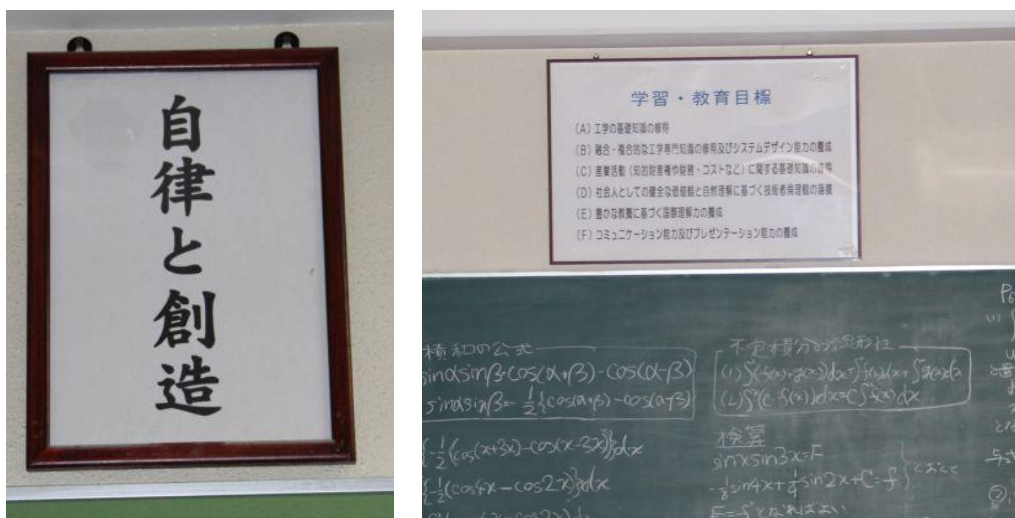 自律と創造
学習・教育目標
(A) 工学の基礎知識の修得
(B) 融合・複合的な工学専門知識の修得及びシステムデザイン能力の養成
(C) 産業活動(知的財産権や財務・コストなど)に関する基礎知識の修得
(D) 社会人としての健全な価値観と自然理解に基づく技術者倫理観の涵養
(E) 豊かな教養に基づく国際理解力の養成
(F) コミュニケーション能力及びプレゼンテーション能力の養成
積和の公式
sinαsinβ=cos(α+β)-cos(α-β)
sinαsinβ=-1/2{cos(α+β)-cos(α-β)}
{-1/2(cos(x+3x)-cos(x-3x)}dx
{-1/2(cos4x-cos2x)}dx
不定積分の線形性
(1)∫(f(x)+g(x))dx=∫f(x)dx+∫g(x)dx
(2)∫(c・f(x))dx=C∫f(x)dx
検算
sinxsin3x=F
-1/8sin4x+1/4sin2x+C=f
とおくと
F=f'となればよい